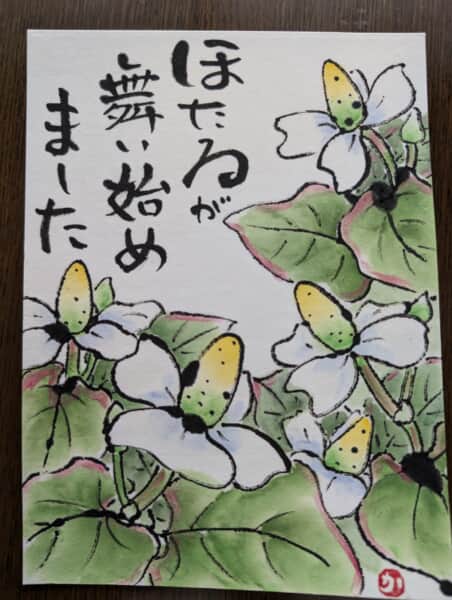 ほたるが
舞い始め
ました